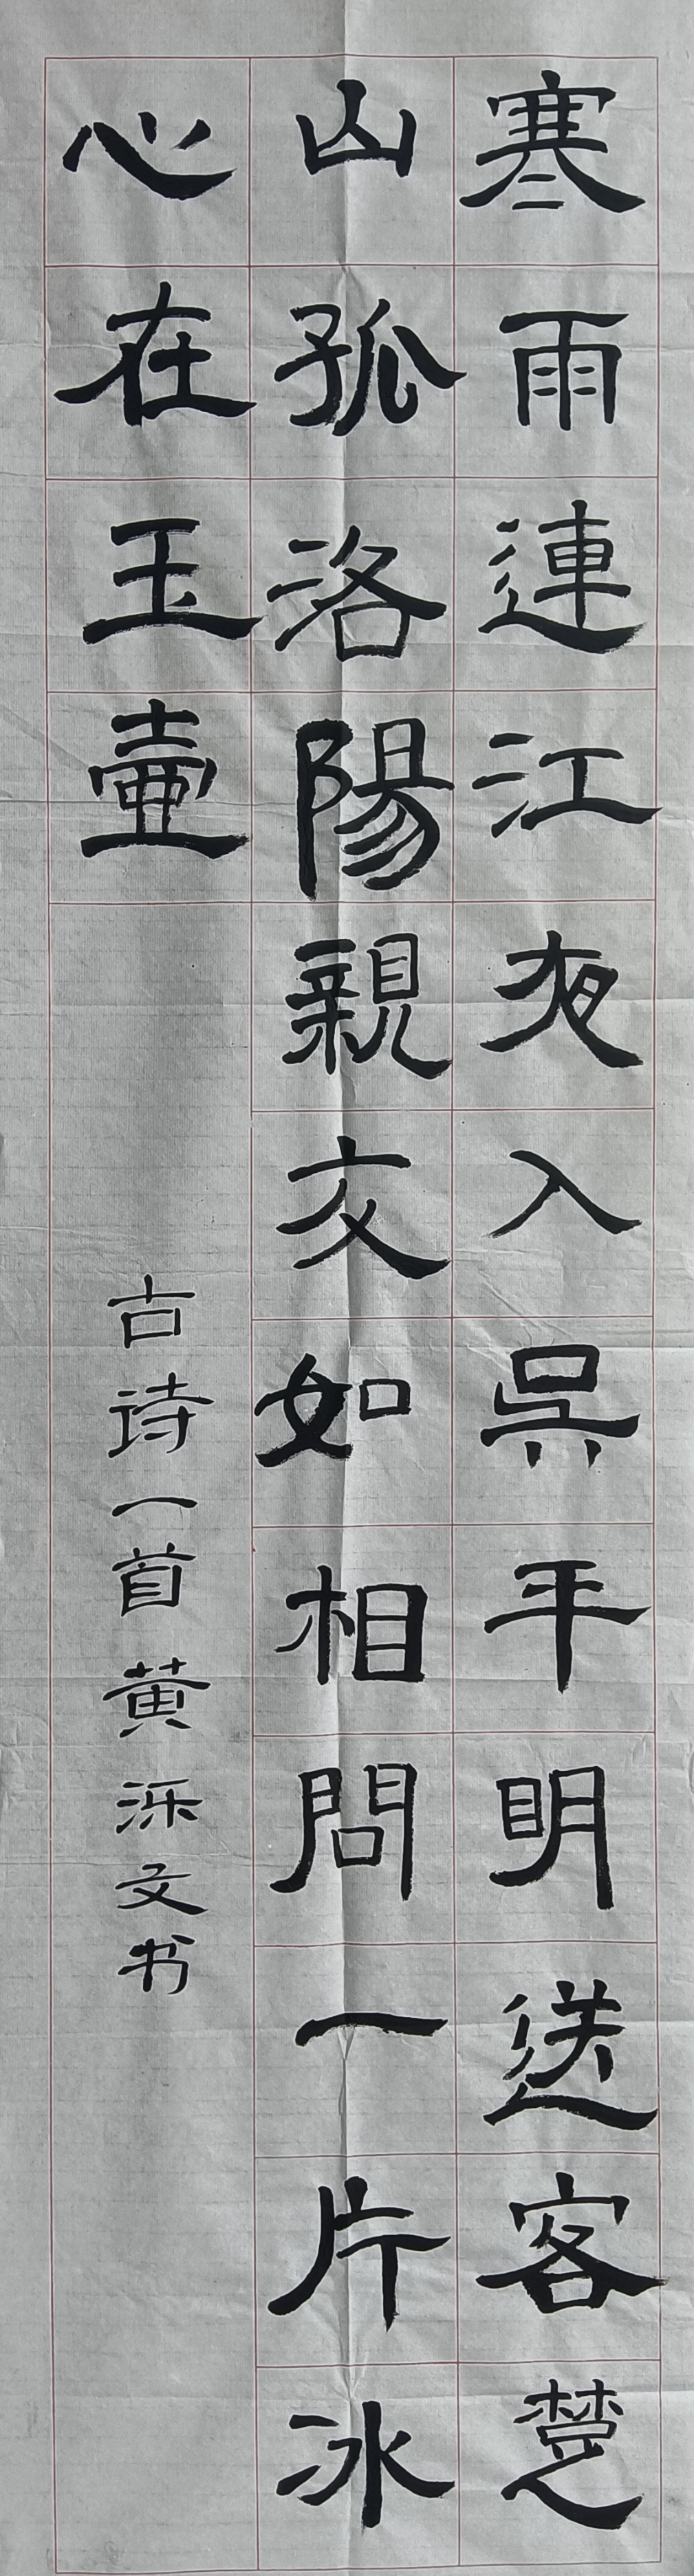 寒雨連江夜入吳平明送客楚
山孤洛陽親友如相問一片冰
心在玉壺
古诗一首 黄泺文书